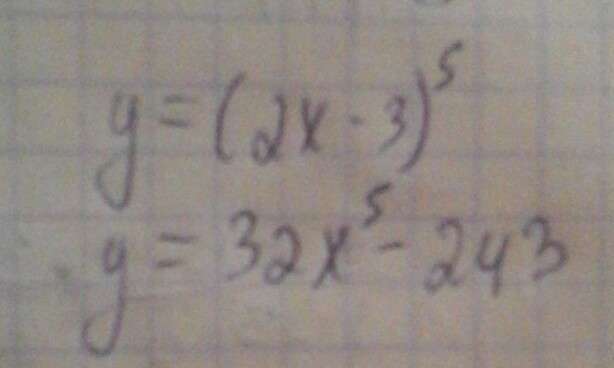 y = (2x - 3)^5
y = 32x^5 - 243